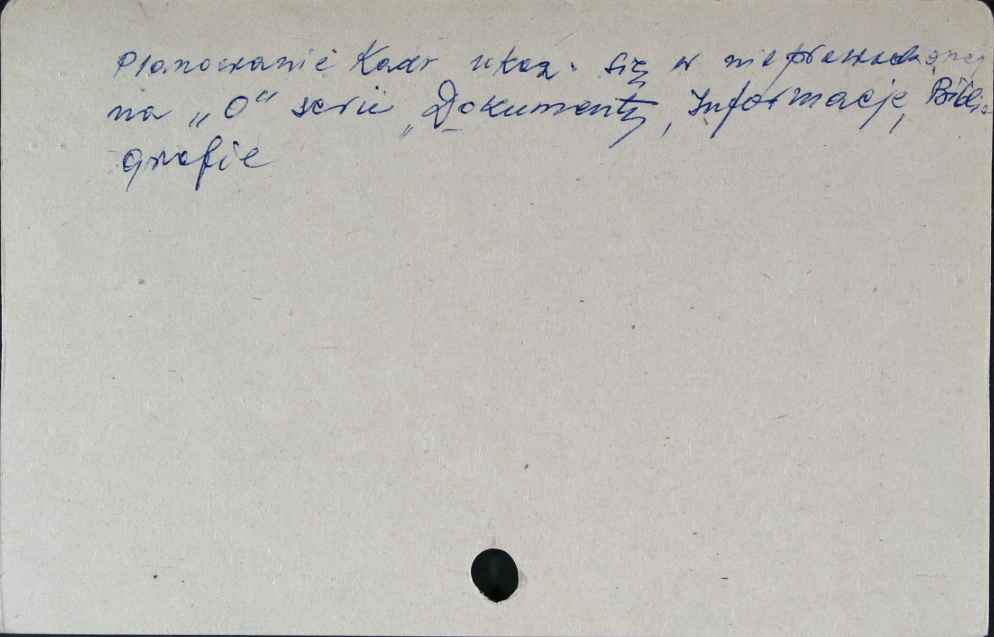 Planowanie Kadr ukaz. się w nieprowadzonej
na „O“ serii „Dokumenty, Informacje, Biblio
grafie